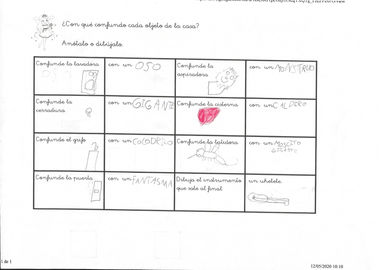 ¿Con qué confundo cada objeto de la casa?
Anótalo o dibújalo.
Confunde la lavadora
con un OSO
Confunde la aspiradora
con un MONSTRUO
Confunde la cerradura
con un GIGANTE
Confunde la cisterna
con un CALDERO
Confunde el grifo
con un COCODRILO
Confunde la batidora
con un MOSQUITO GIGANTE
Confunde la puerta
con un FANTASMA
Dibuja el instrumento que sale al final
un ukelele.
1 de 1
12/05/2020 10:18